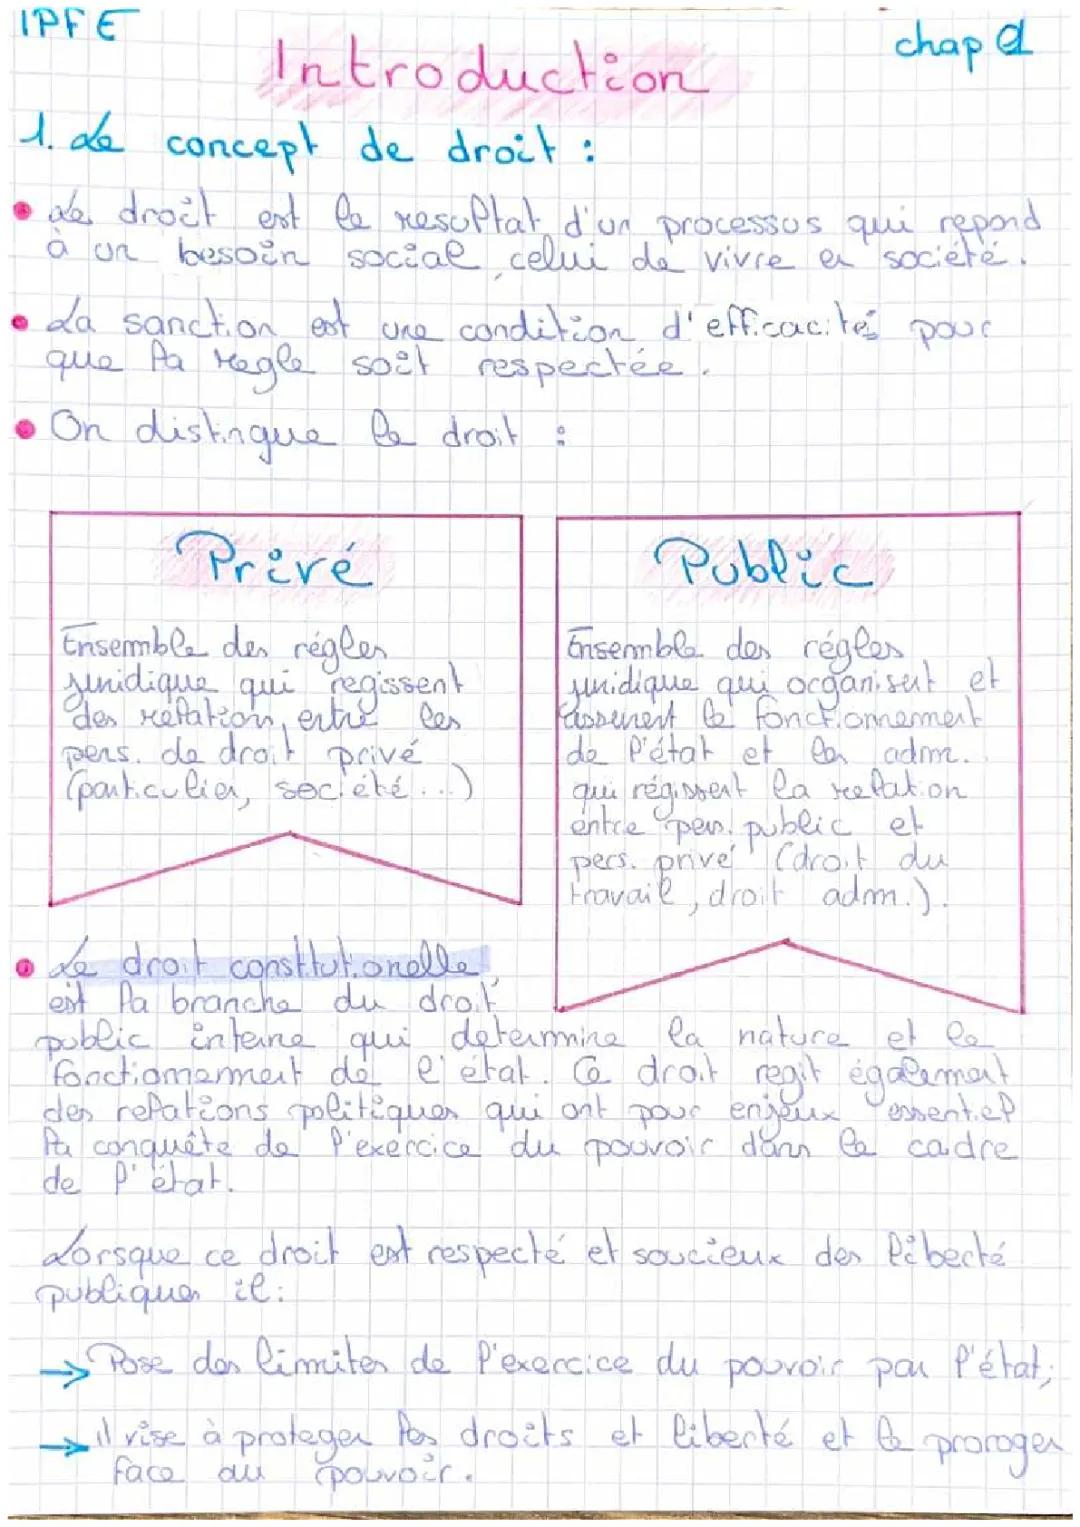 IPFE
chap 1
Introduction
1. Le concept de droit :
Le droit est le resultat d'un processus qui repond
à un besoin social, celui de vivre en société.
La sanction est une condition d'efficacité pour
que la regle soit respectée.
On distingue le droit :
Privé
Ensemble des régles
juridique qui regissent
des relation, entre les
pers. de droit privé
(particulier, société...)
Public
Ensemble des régles
juridique qui organisent et
assurent le fonctionnement
de l'état et les adm.
qui régissent la relation
entre pers. public et
pers. privé (droit du
travail, droit adm.).
Le droit constitutionelle,
est la branche du droit
public interne qui determine la nature et le
fonctionnement de l'état. Ce droit regit également
des relations politiques qui ont pour enjeux essentiel
la conquête de l'exercice du pouvoir dans le cadre
de l'état.
Lorsque ce droit est respecté et soucieux des liberté
publiques il:
→ Pose des limites de l'exercice du pouvoir par l'état;
→ il vise à proteger les droits et liberté et le proroger
face au pouvoir.